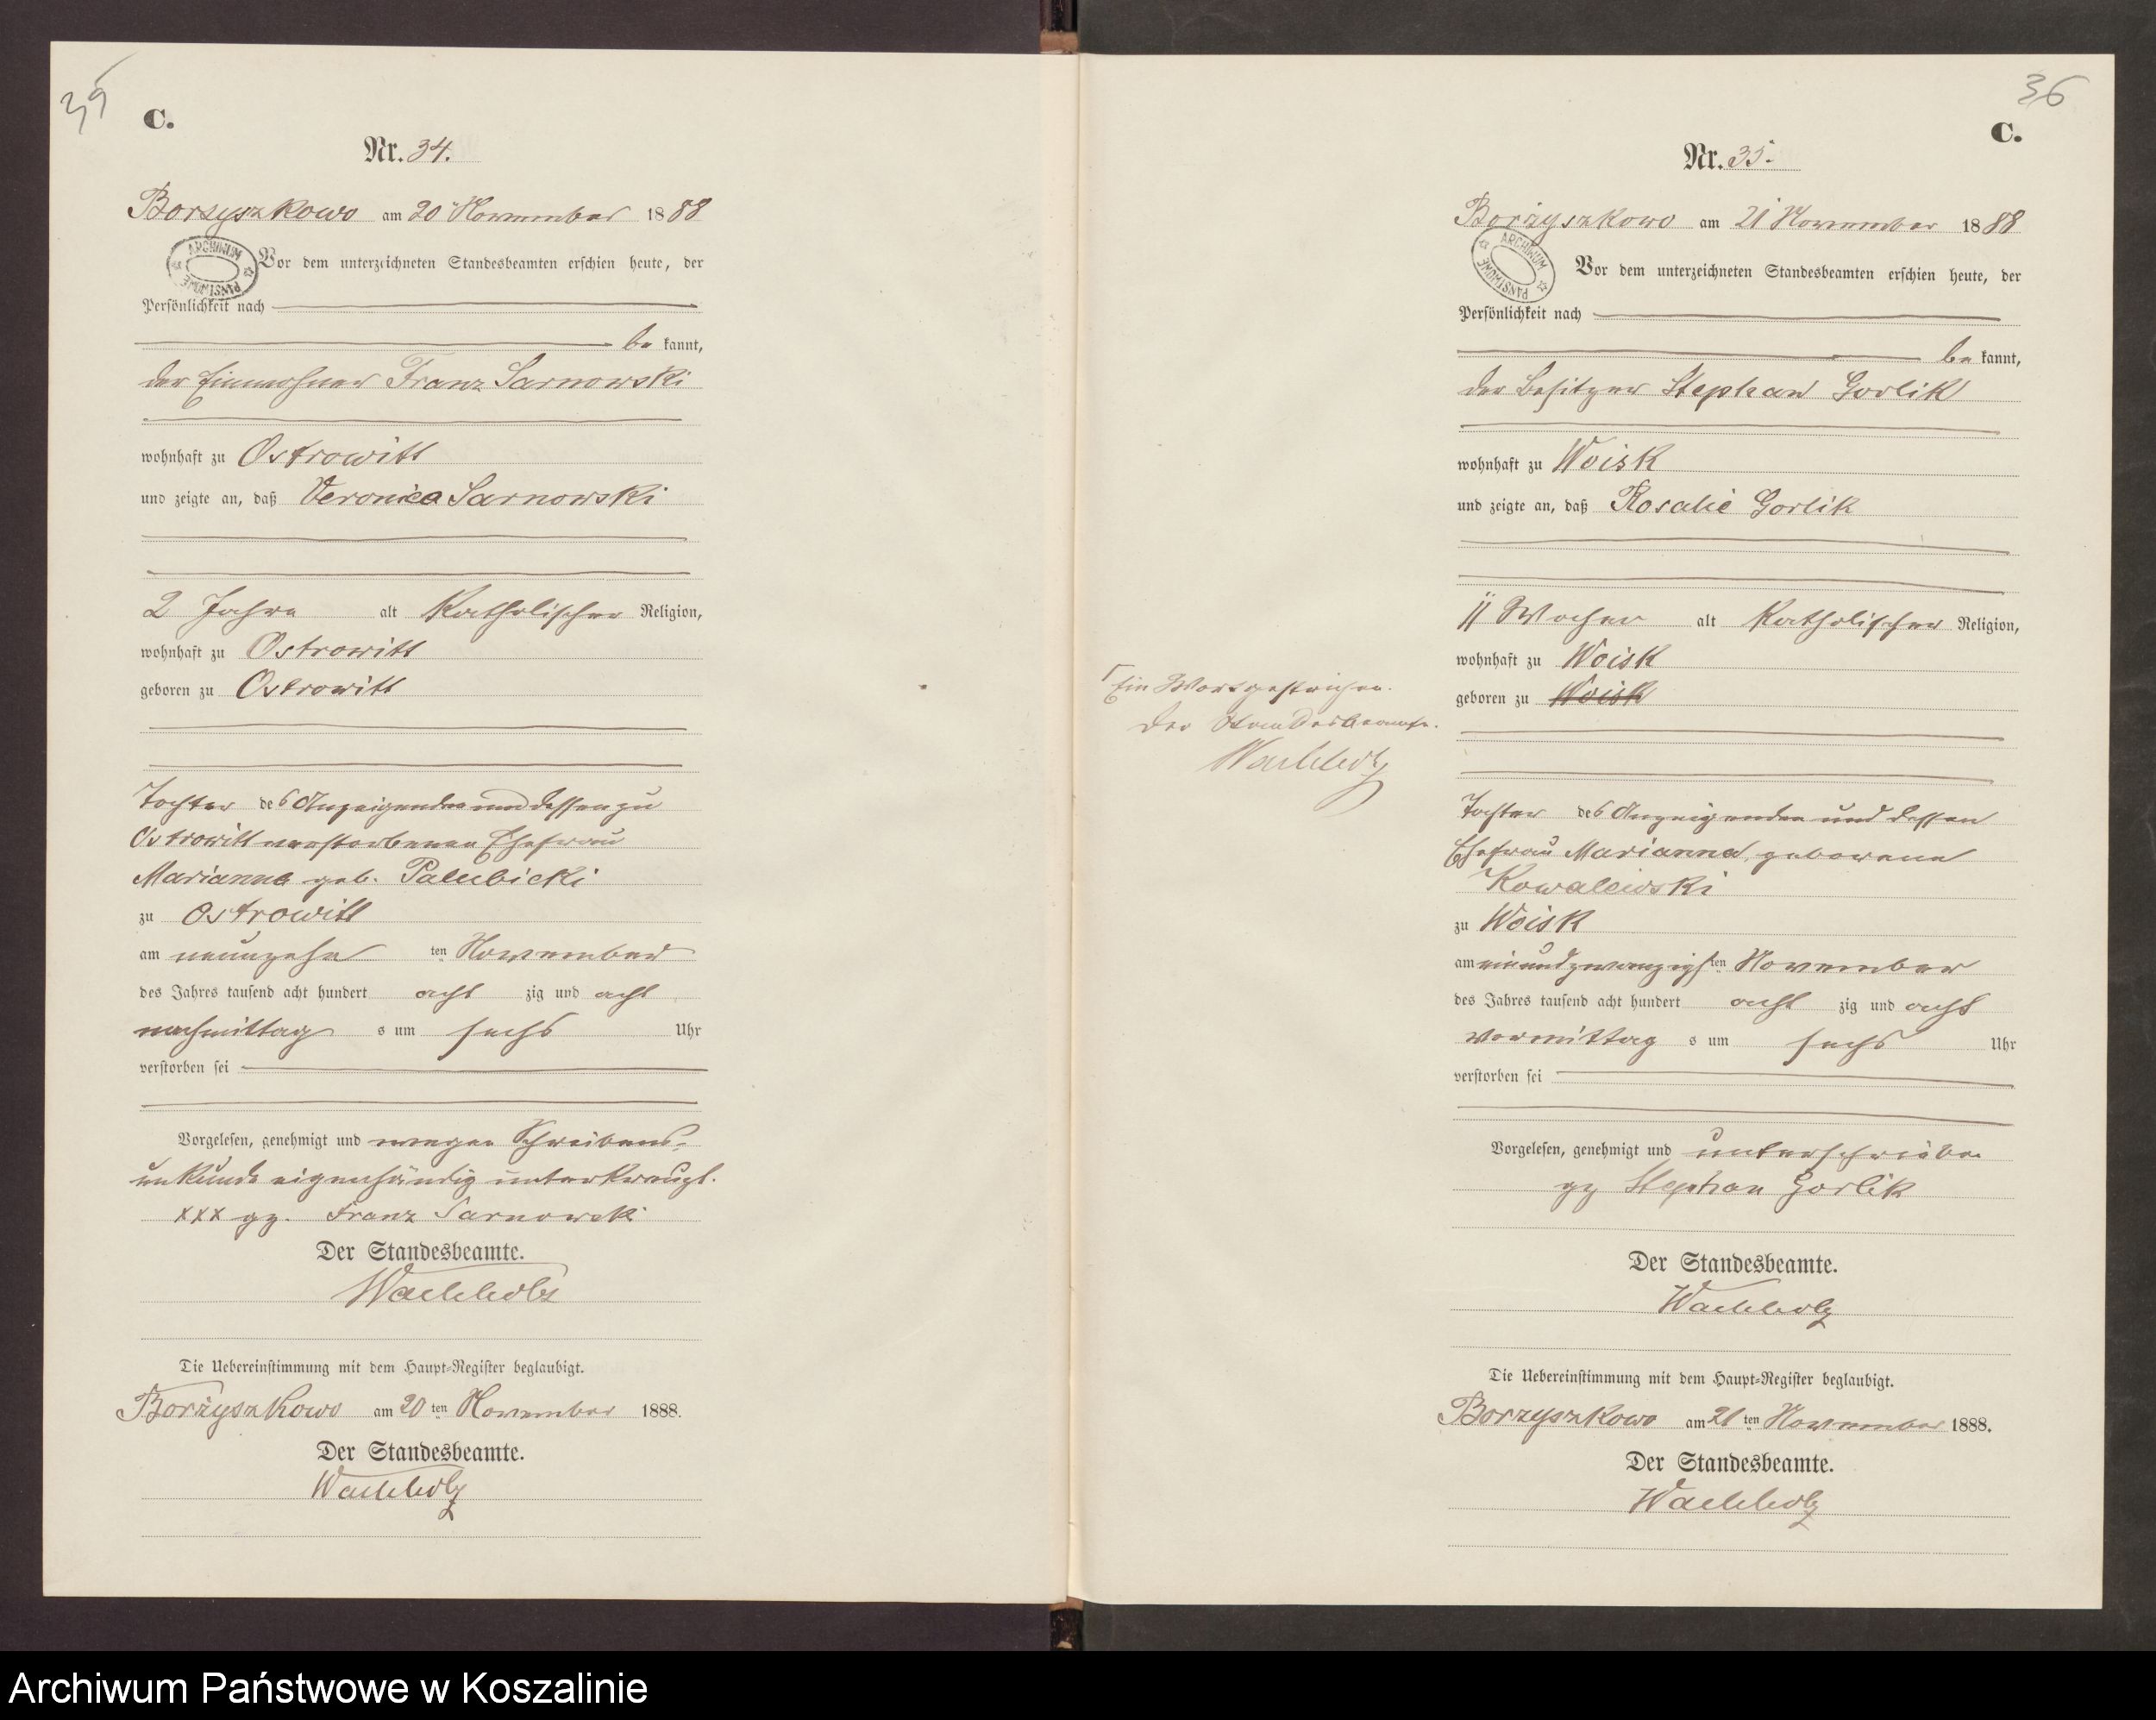 35
C.
Nr. 34.
Borzyszkowo am 20 November 1888
Vor dem unterzeichneten Standesbeamten erschien heute, der
Persönlichkeit nach
be kannt,
der Einwohner Franz Sarnowski
wohnhaft zu Ostrowitt
und zeigte an, daß Veronica Sarnowski
2 Jahre alt Katholischer Religion,
wohnhaft zu Ostrowitt
geboren zu Ostrowitt
Tochter des Anzeigenden und dessen zu
Ostrowitt verstorbenen Ehefrau
Marianna geb. Palubicki
zu Ostrowitt
am neunzehn ten November
des Jahres tausend acht hundert acht zig und acht
nachmittag s um sechs Uhr
verstorben sei
Vorgelesen, genehmigt und wegen Schreibens-
unkunde eigenhändig unterkreuzt.
xxx gz. Franz Sarnowski
Der Standesbeamte.
Wachholz
Die Uebereinstimmung mit dem Haupt-Register beglaubigt.
Borzyszkowo am 20 ten November 1888.
Der Standesbeamte.
Wachholz
ARCHIWUM PAŃSTWOWE
36
C.
Nr. 35.
Borzyszkowo am 21 November 1888
Vor dem unterzeichneten Standesbeamten erschien heute, der
Persönlichkeit nach
be kannt,
der Besitzer Stephan Gorlik
wohnhaft zu Woisk
und zeigte an, daß Rosalie Gorlik
11 Wochen alt Katholischer Religion,
wohnhaft zu Woisk
geboren zu Woisk
Ein Wort gestrichen.
Der Standesbeamte.
Wachholz
Tochter des Anzeigenden und dessen
Ehefrau Marianna, geborene
Kowalewski
zu Woisk
am einundzwanzigsten November
des Jahres tausend acht hundert acht zig und acht
vormittag s um sechs Uhr
verstorben sei
Vorgelesen, genehmigt und unterschrieben
gz Stephan Gorlik
Der Standesbeamte.
Wachholz
Die Uebereinstimmung mit dem Haupt-Register beglaubigt.
Borzyszkowo am 21 ten November 1888.
Der Standesbeamte.
Wachholz
ARCHIWUM PAŃSTWOWE
Archiwum Państwowe w Koszalinie